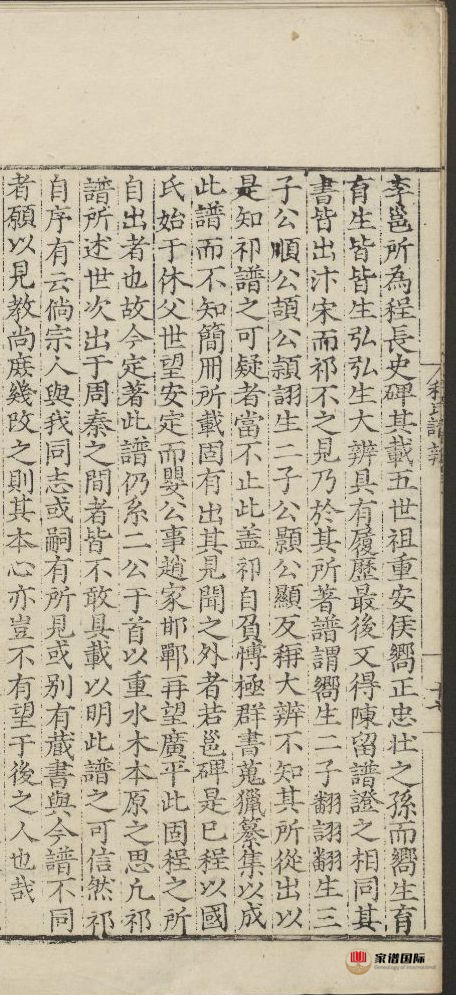 李邕所為程長史碑其載五世祖重安侯嚮正忠壯之孫而嚮生育
育生皆皆生弘弘生大辨具有履歷最後又得陳留譜證之相同其
書皆出汴宋而祁不之見乃於其所著譜謂嚮生二子翻詡翻生三
子公順公頡公頴詡生二子公顥公顯反稱大辨不知其所從出以
是知祁譜之可疑者當不止此盖祁自負愽極群書蒐獵纂集以成
此譜而不知簡冊所載固有出其見聞之外者若邕碑是已程以國
氏始于休父世望安定而嬰公事趙家邯鄲再望廣平此固程之所
自出者也故今定著此譜仍系二公于首以重水木本原之思凢祁
譜所述世次出于周秦之間者皆不敢具載以明此譜之可信然祁
自序有云倘宗人與我同志或嗣有所見或别有蔵書與今譜不同
者願以見教尚庶幾改之則其本心亦豈不有望于後之人也哉
程氏譜辨
家谱国际
Genealogy of International